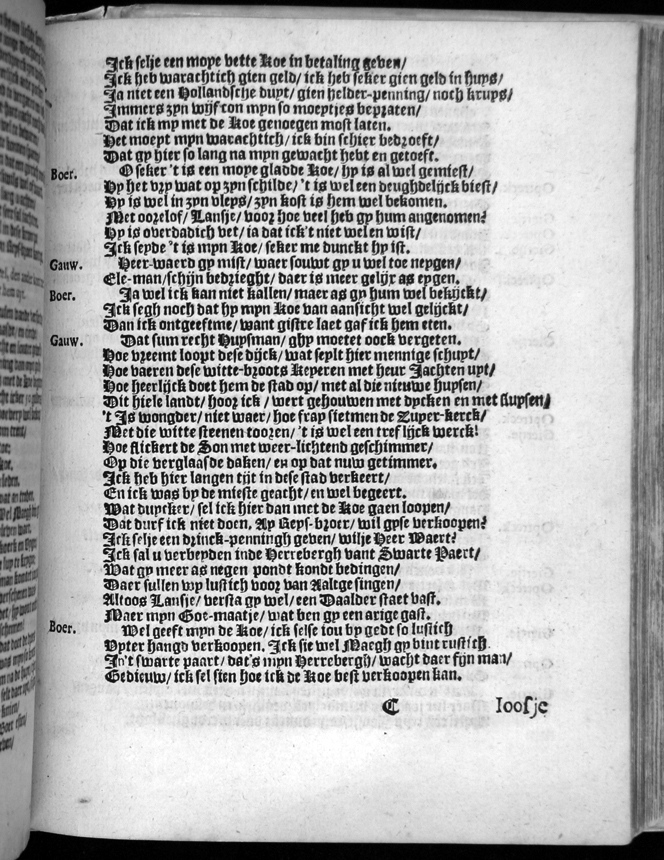 Ick selje een moye vette Koe in betaling geven/
Ick heb warachtich gien geld/ ick heb seker gien geld in huys/
Ja niet een Hollandsche duyt/ gien helder-penning/ noch kruys/
Immers zyn wijf con myn so moeytjes bepraten/
Dat ick my met de Koe genoegen most laten.
Het moeyt myn warachtich/ ick bin schier bedroeft/
Dat gy hier so lang na myn gewacht hebt en getoeft.
Boer. O seker 't is een moye gladde Koe/ hy is al wel gemiest/
Hy het vry wat op zyn schilde/ 't is wel een deughdelijck biest/
Hy is wel in zyn vleys/ zyn kost is hem wel bekomen.
Met oorelof/ Lansje/ voor hoe veel heb gy hum angenomen?
Hy is overdadich vet/ ia dat ick't niet wel en wist/
Ick seyde 't is myn Koe/ seker me dunckt hy ist.
Gauw. Heer-waerd gy mist/ waer souwt gy u wel toe neygen/
Ele-man/ schijn bedrieght/ daer is meer gelijx as eygen.
Boer. Ja wel ick kan niet kallen/ maer as gy hum wel bekijckt/
Ick segh noch dat hy myn Koe van aansicht wel gelijckt/
Dan ick ontgeeftme/ want gistre laet gaf ick hem eten.
Gauw. Dat sum recht Huysman/ ghy moetet oock vergeten.
Hoe vreemt loopt dese dijck/ wat seylt hier mennige schuyt/
Hoe vaeren dese witte-broots Keyeren met heur Jachten uyt/
Hoe heerlijck doet hem de stad op/ met al die nieuwe huysen/
Dit hiele landt/ hoor ick/ wert gehouwen met dycken en met sluysen/
't Is wongder/ niet waer/ hoe fray sietmen de Zuyer-kerck/
Met die witte steenen tooren/ 't is wel een treflijck werck!
Hoe flickert de Son met weer-lichtend geschimmer/
Op die verglaasde daken/ en op dat nuw getimmer.
Ick heb hier langen tijt in dese stad verkeert/
En ick was by de mieste geacht/ en wel begeert.
Wat duycker/ sel ick hier dan met de Koe gaen loopen/
Dat durf ick niet doen. Ay Reys-broer/ wil gyse verkoopen?
Ick selje een drinck-penningh geven/ wilje Heer Waert?
Ick sal u verbeyden inde Herrebergh vant Swarte Paert/
Wat gy meer as negen pondt kondt bedingen/
Daer sullen wy lustich voor van Aaltge singen/
Altoos Lansje/ versta gy wel/ een Daalder staet vast.
Maer myn Goe-maatje/ wat ben gy een arige gast.
Boer. Wel geeft myn de Koe/ ick selse iou by gedt so lustich
Uyter hangd verkoopen. Ick sie wel Maegh gy bint rustich
In't swarte paart/ dat's myn Herrebergh/ wacht daer fijn man/
Gedieuw/ ick sel sien hoe ick de Koe best verkoopen kan.
C Ioosje